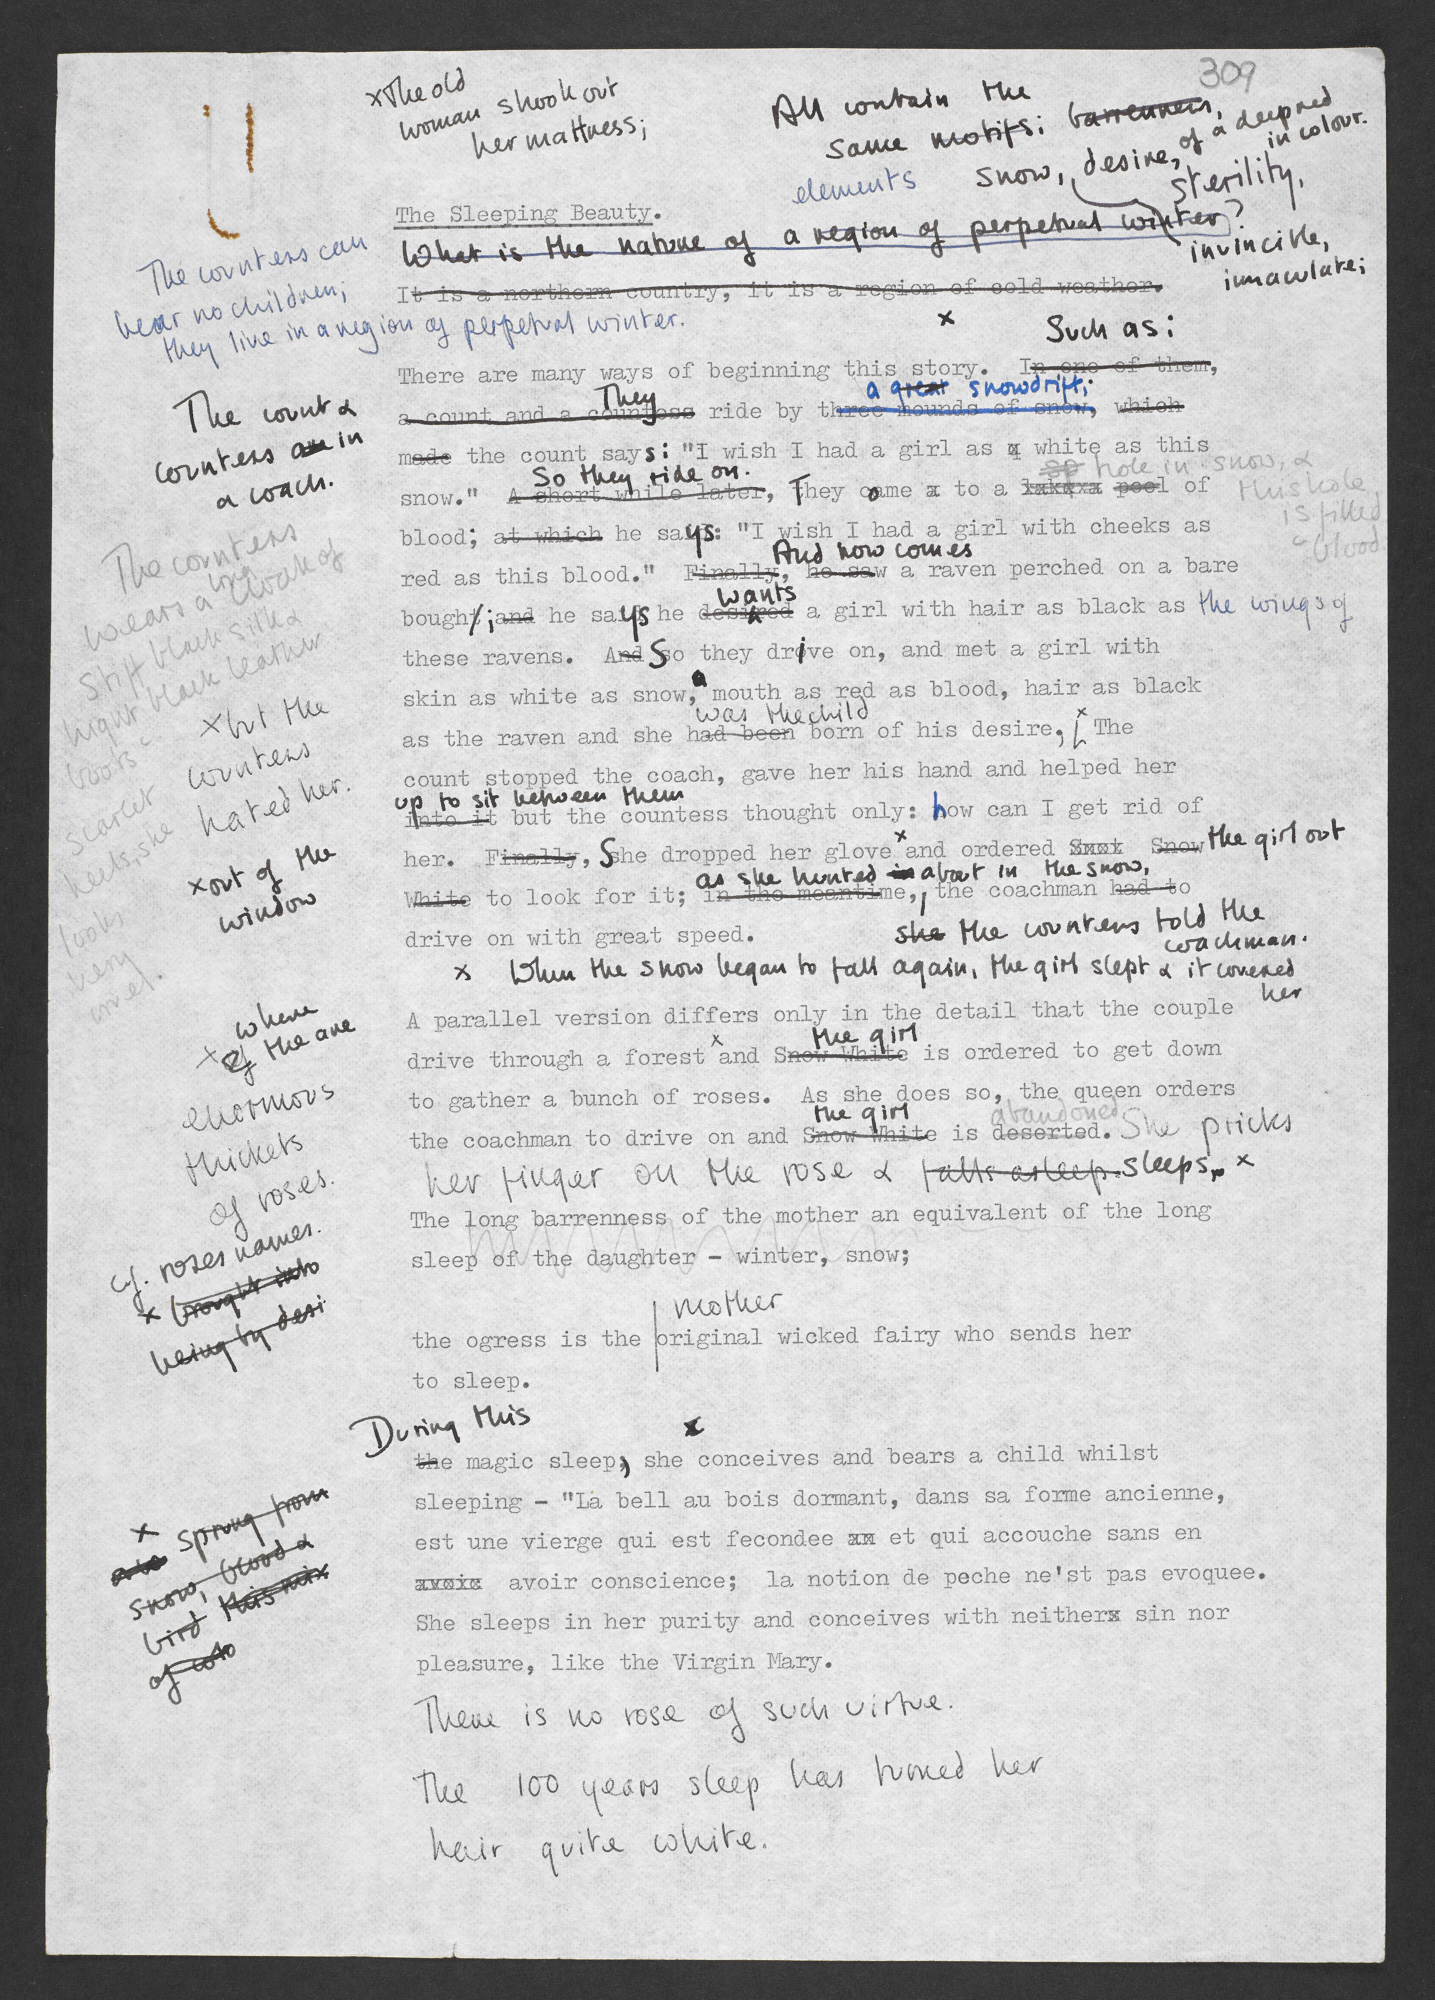 309
x The old
woman shook out
her mattress;
All contain the
same motifs: barrenness,
elements snow, desire, of a deep red
in colour.
sterility,
invincible,
immaculate;
The Sleeping Beauty.
What is the nature of a region of perpetual winter?
It is a northern country, it is a region of cold weather.
The countess can
bear no children;
they live in a region of perpetual winter.
x Such as:
There are many ways of beginning this story. In one of them,
They a great snowdrift;
a count and a countess ride by three mounds of snow, which
The count &
countess are in
a coach.
made the count says: "I wish I had a girl as q white as this
So they ride on. so hole in snow, &
this hole
is filled
c blood.
snow." A short while later, They come x to a lakexa pool of
blood; at which he says: "I wish I had a girl with cheeks as
And now comes
red as this blood." Finally, he saw a raven perched on a bare
wants
bought/; and he says he desired a girl with hair as black as the wings of
these ravens. And So they drive on, and met a girl with
skin as white as snow, a mouth as red as blood, hair as black
was the child
as the raven and she had been born of his desire, x [The
The countess
wears a long cloak of
stiff black silk &
high black leather
boots c
scarlet
heels, she
looks
very
cruel.
x but the
countess
hated her.
count stopped the coach, gave her his hand and helped her
up to sit between them
into it but the countess thought only: how can I get rid of
her. Finally, She dropped her glove x and ordered Snox Snow the girl out
x out of the
window
as she hunted in about in the snow,
White to look for it; in the meantime, the coachman had to
drive on with great speed. she the countess told the
coachman.
x When the snow began to fall again, the girl slept & it covered
her
A parallel version differs only in the detail that the couple
the girl
drive through a forest x and Snow White is ordered to get down
x where
of the are
enormous
thickets
of roses.
c.f. roses names.
to gather a bunch of roses. As she does so, the queen orders
the girl abandoned
the coachman to drive on and Snow White is deserted. She pricks
her finger on the rose & falls asleep. sleeps, x
x brought into
being by desi
The long barrenness of the mother an equivalent of the long
sleep of the daughter - winter, snow;
mother
the ogress is the original wicked fairy who sends her
to sleep.
During this x
the magic sleep, she conceives and bears a child whilst
sleeping - "La bell au bois dormant, dans sa forme ancienne,
x sprung from
snow, blood &
bird this mix
of
est une vierge qui est fecondee xn et qui accouche sans en
avoic avoir conscience; la notion de peche ne'st pas evoquee.
She sleeps in her purity and conceives with neitherx sin nor
pleasure, like the Virgin Mary.
There is no rose of such virtue.
The 100 years sleep has turned her
hair quite white.